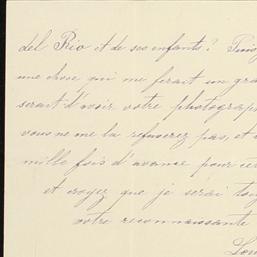 del Rio et de ses enfants? Puis
une chose qui me ferait un gra
serait d'avoir votre photograp
vous ne me la refuserez pas, et
mille fois d'avance pour cet
et croyez que je serai touj
votre reconnaissante
Lou